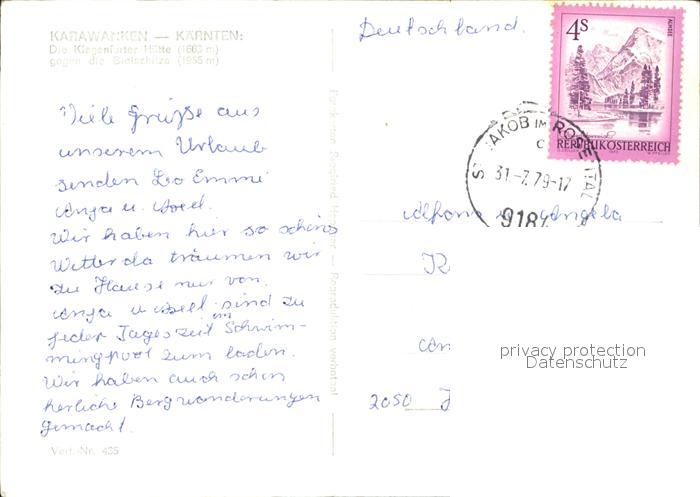 KARAWANKEN — KÄRNTEN:
Die Klagenfurter Hütte (1663 m)
gegen die Bielschitza (1955 m)
Deutschland.
4 S
ALMSEE
REPUBLIK ÖSTERREICH
ST. JAKOB IM ROSENTAL
31.-7.79-17
918
Viele Grüße aus
unserem Urlaub
senden Leo Emmi
Anja u. Axel.
Wir haben hier so schönes
Wetter da träumen wir
zu Hause nur von.
Anja u Axel sind zu
jeder Tageszeit im Schwim-
mingpool zum baden.
Wir haben auch schon
herliche Bergwanderungen
gemacht.
Alfons u. Angela
2050
Verl.-Nr. 435
Reproduktion verboten!
privacy protection
Datenschutz